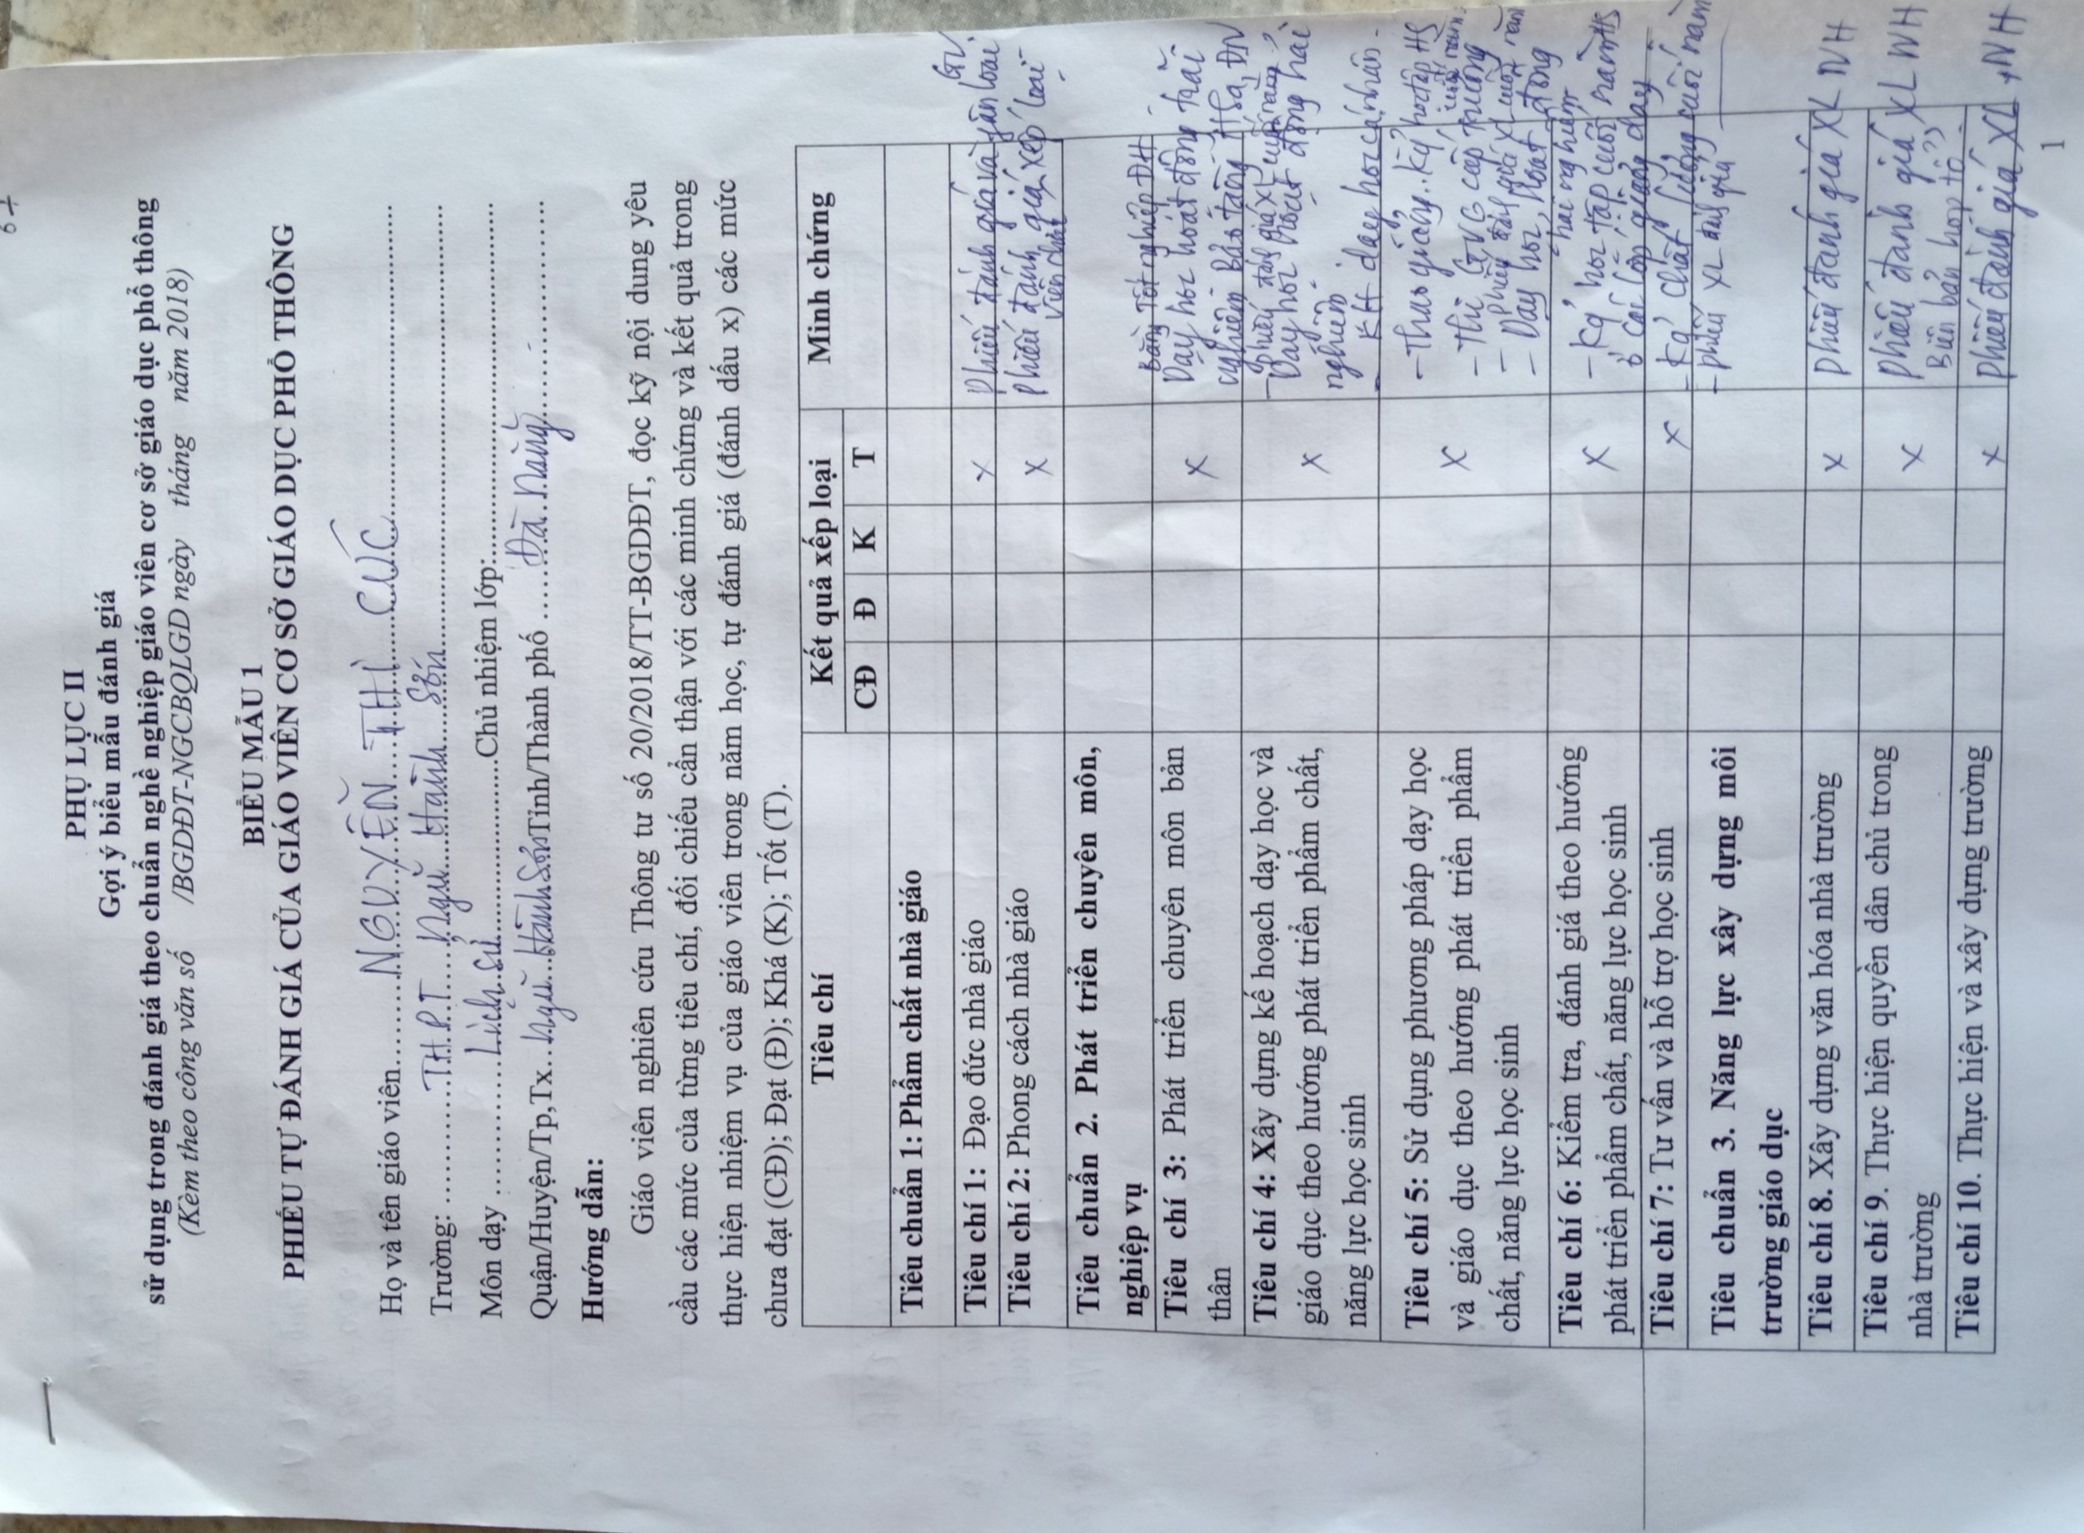 PHỤ LỤC II
Gợi ý biểu mẫu đánh giá
sử dụng trong đánh giá theo chuẩn nghề nghiệp giáo viên cơ sở giáo dục phổ thông
(Kèm theo công văn số /BGDĐT-NGCBQLGD ngày tháng năm 2018)
BIỂU MẪU 1
PHIẾU TỰ ĐÁNH GIÁ CỦA GIÁO VIÊN CƠ SỞ GIÁO DỤC PHỔ THÔNG
Họ và tên giáo viên.......NGUYỄN THỊ CÚC.......
Trường: .......THPT Ngũ Hành Sơn.......
Môn dạy .......Lịch sử.......Chủ nhiệm lớp:.......
Quận/Huyện/Tp,Tx..Ngũ Hành Sơn Tỉnh/Thành phố ......Đà Nẵng.......
Hướng dẫn:
Giáo viên nghiên cứu Thông tư số 20/2018/TT-BGDĐT, đọc kỹ nội dung yêu
cầu các mức của từng tiêu chí, đối chiếu cẩn thận với các minh chứng và kết quả trong
thực hiện nhiệm vụ của giáo viên trong năm học, tự đánh giá (đánh dấu x) các mức
chưa đạt (CĐ); Đạt (Đ); Khá (K); Tốt (T).
Tiêu chí Kết quả xếp loại Minh chứng
CĐ Đ K T
Tiêu chuẩn 1: Phẩm chất nhà giáo
Tiêu chí 1: Đạo đức nhà giáo x Phiếu đánh giá và phân loại GV
Tiêu chí 2: Phong cách nhà giáo x Phiếu đánh giá xếp loại
viên chức
Tiêu chuẩn 2. Phát triển chuyên môn,
nghiệp vụ
Tiêu chí 3: Phát triển chuyên môn bản
thân x Bằng Tốt nghiệp ĐH
Dạy học hoạt động trải
nghiệm Bảo tàng
Tiêu chí 4: Xây dựng kế hoạch dạy học và
giáo dục theo hướng phát triển phẩm chất,
năng lực học sinh x - phiếu đánh giá XL cuối năm
Dạy học hoạt động trải
nghiệm
- KH dạy học cá nhân
Tiêu chí 5: Sử dụng phương pháp dạy học
và giáo dục theo hướng phát triển phẩm
chất, năng lực học sinh x - Thao giảng
- Thi GVG cấp trường
- phiếu đánh giá XL cuối năm
- Dạy học, hoạt động
Tiêu chí 6: Kiểm tra, đánh giá theo hướng
phát triển phẩm chất, năng lực học sinh x - Kq' học tập cuối năm HS
ở các lớp giảng dạy
Tiêu chí 7: Tư vấn và hỗ trợ học sinh x - Kq' chất lượng cuối năm
- phiếu XL
Tiêu chuẩn 3. Năng lực xây dựng môi
trường giáo dục
Tiêu chí 8. Xây dựng văn hóa nhà trường x Phiếu đánh giá XL NH
Tiêu chí 9. Thực hiện quyền dân chủ trong
nhà trường x Phiếu đánh giá XL NH
Biên bản họp tổ
Tiêu chí 10. Thực hiện và xây dựng trường x Phiếu đánh giá XL NH
1